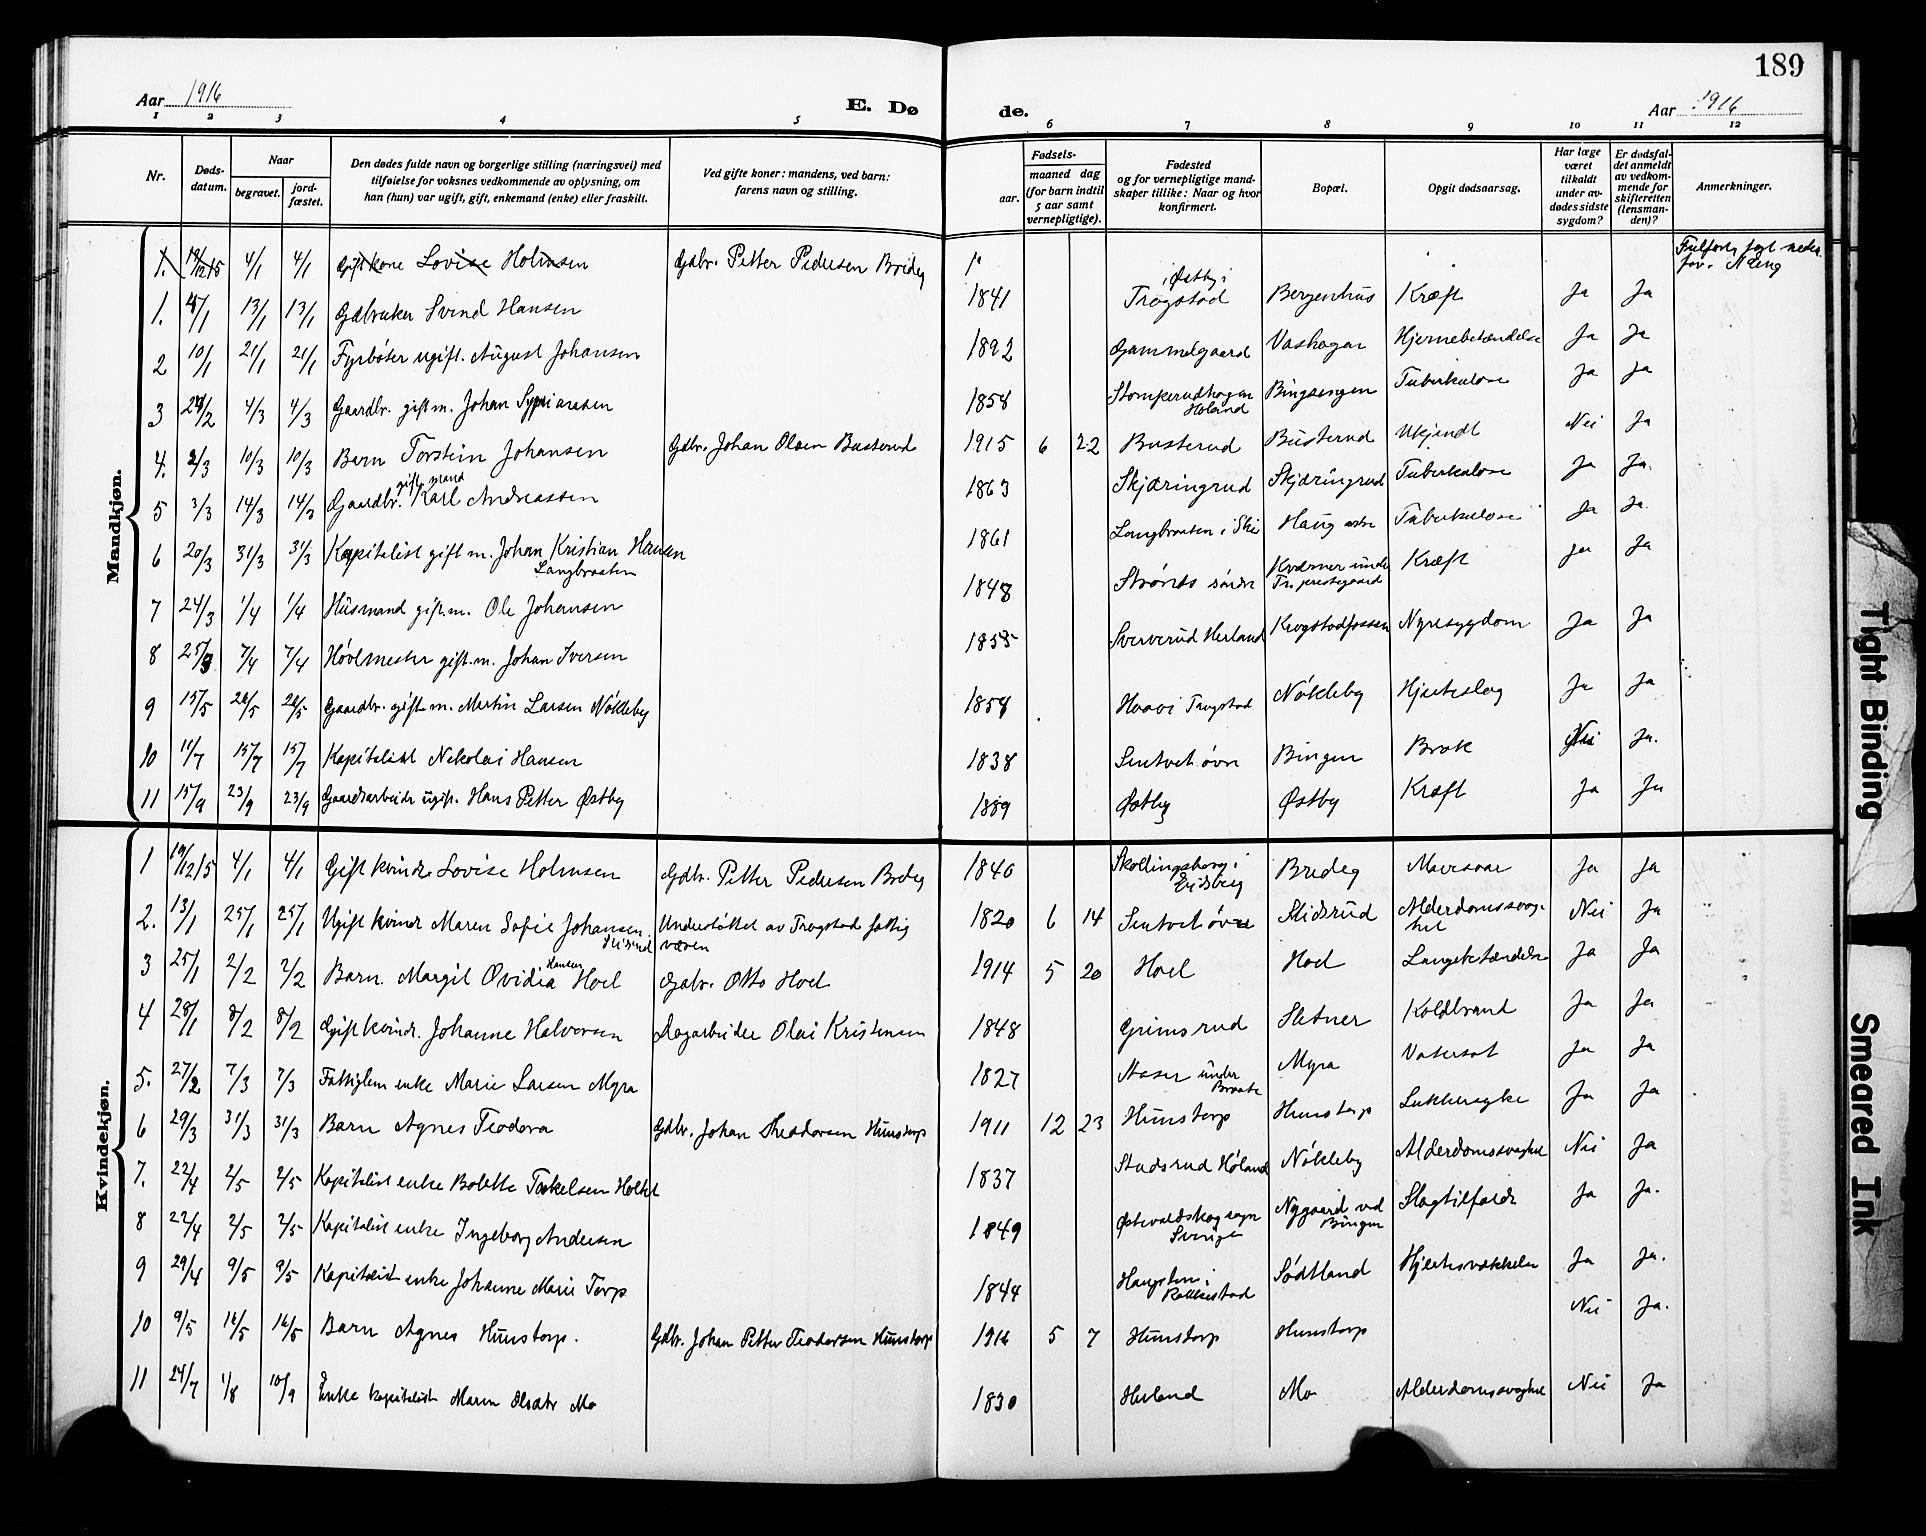 189
Aar 1916 E. Dø de. Aar 1916
1 2 3 4 5 6 7 8 9 10 11 12
Nr.
Døds-datum.
Naar
begravet.
jord-fæstet.
Den dødes fulde navn og borgerlige stilling (næringsvei) med
tilføielse for voksnes vedkommende av oplysning, om
han (hun) var ugift, gift, enkemand (enke) eller fraskilt.
Ved gifte koner: mandens, ved barn:
farens navn og stilling.
Fødsels-
aar.
maaned dag
(for barn indtil
5 aar samt
vernepligtige).
Fødested
og for vernepligtige mand-
skaper tillike: Naar og hvor
konfirmert.
Bopæl.
Opgit dødsaarsag.
Har læge
været
tilkaldt
under av-
dødes sidste
sygdom?
Er dødsfal-
det anmeldt
av vedkom-
mende for
skifteretten
(lensman-
den)?
Anmerkninger.
Mandkjøn.
1. 19/12 15 4/1 4/1 Gift kone Lovise Holmsen Gdbr. Petter Pedersen Bredeg
1. 4/1 13/1 13/1 Gdbruker Svend Hansen 1841 Østby i Trøgstad Bergenhus Kræft Ja Ja
2 10/1 21/1 21/1 Fyrbøter ugift. August Johansen 1892 Gammelgaard Vashagan Hjernebetændelse Ja Ja
3 24/2 4/3 4/3 Gaardbr. gift m. Johan 1858 Stomperudhagen Høland Bingsengen Tuberkulose Ja Ja
4. 2/3 10/3 10/3 Barn Torstein Johansen Gdbr. Johan Olsen Busterud 1915 6 22 Busterud Busterud Ukjendt Nei Ja
5 3/3 14/3 14/3 Gaardbr. gift mand Karl Andreassen 1863 Skjæringrud Skjæringrud Tuberkulose Ja Ja.
6 20/3 31/3 31/3 Kapitalist gift m. Johan Kristian Hansen Langbraaten 1861 Langbraaten i Ski Haug Tuberkulose Ja Ja.
7 24/3 1/4 1/4 Husmand gift m. Ole Johansen 1848 Strønes søndre Kværner under Tr. prestegaard Kræft Ja Ja
8 25/3 7/4 7/4 Høvlmester gift. m. Johan Iversen 1855 Sververud Herland Krogstadfossen Nyresygdom Ja Ja
9 15/5 26/5 26/5 Gaardbr. gift m. Martin Larsen Nøkleby 1858 Trøgstad Nøkleby Hjerteslag Ja Ja
10 11/7 15/7 15/7 Kapitalist Nikolai Hansen 1838 Sentvet øvre Bingen Brok Nei Ja.
11 15/9 23/9 23/9 Gaardsarbeider ugift. Hans Petter Østby 1889 Østby Østby Kræft Ja Ja
Kvindekjøn.
1 19/12 15 4/1 4/1 Gift kvinde Lovise Holmsen Gdbr. Petter Pedersen Bredeg 1840 Skollingsberg i Eidsberg Bredeg Mavesaar Ja Ja
2. 13/1 25/1 25/1 Ugift kvinde Maren Sofie Johansen Slidsrud Understøttet av Trøgstad fattigvæsen 1820 6 14 Sentvet øvre Slidsrud Alderdomssvaghet Nei Ja
3 25/1 2/2 2/2 Barn. Margit Ovidia Hansen Hoel Gdbr. Otto Hoel 1914 5 20 Hoel Hoel Lungebetændelse Ja Ja
4 28/1 8/2 8/2 Gift kvinde. Johanne Halvorsen Dagarbeider Olai Kristensen 1848 Grimsrud Sletner Koldbrand Ja Ja
5. 27/2 7/3 7/3 Fattiglem enke Marie Larsen Myra 1827 under Braate Myra Vatersot Ja Ja
6 29/3 31/3 31/3 Barn Agnes Teodora Gdbr. Johan Theodorsen Hunstorp 1911 12 23 Hunstorp Hunstorp Sukkersyke Ja Ja
7. 22/4 2/5 2/5 Kapitalist enke Bolette Torkelsen 1837 Stadsrud Høland Nøkleby Alderdomssvaghet Nei Ja
8 22/4 2/5 2/5 Kapitalist enke Ingeborg Andersen 1849 Østervaldskog sogn Sverige Nygaard ved Bingen Slagtilfælde Ja Ja.
9 29/4 9/5 9/5 Kapitalist enke Johanne Marie Torp 1844 Haugsten i Rakkestad Sødtland Hjertesvækkelse Ja Ja.
10 9/5 16/5 16/5 Barn Agnes Hunstorp. Gdbr. Johan Petter Teodorsen Hunstorp 1916 5 7 Hunstorp Hunstorp Nei Ja.
11 24/7 1/8 10/9 Enke kapitalist Maren Mo 1830 Herland Mo Alderdomssvaghet Nei Ja
Tight Binding
Smeared Ink